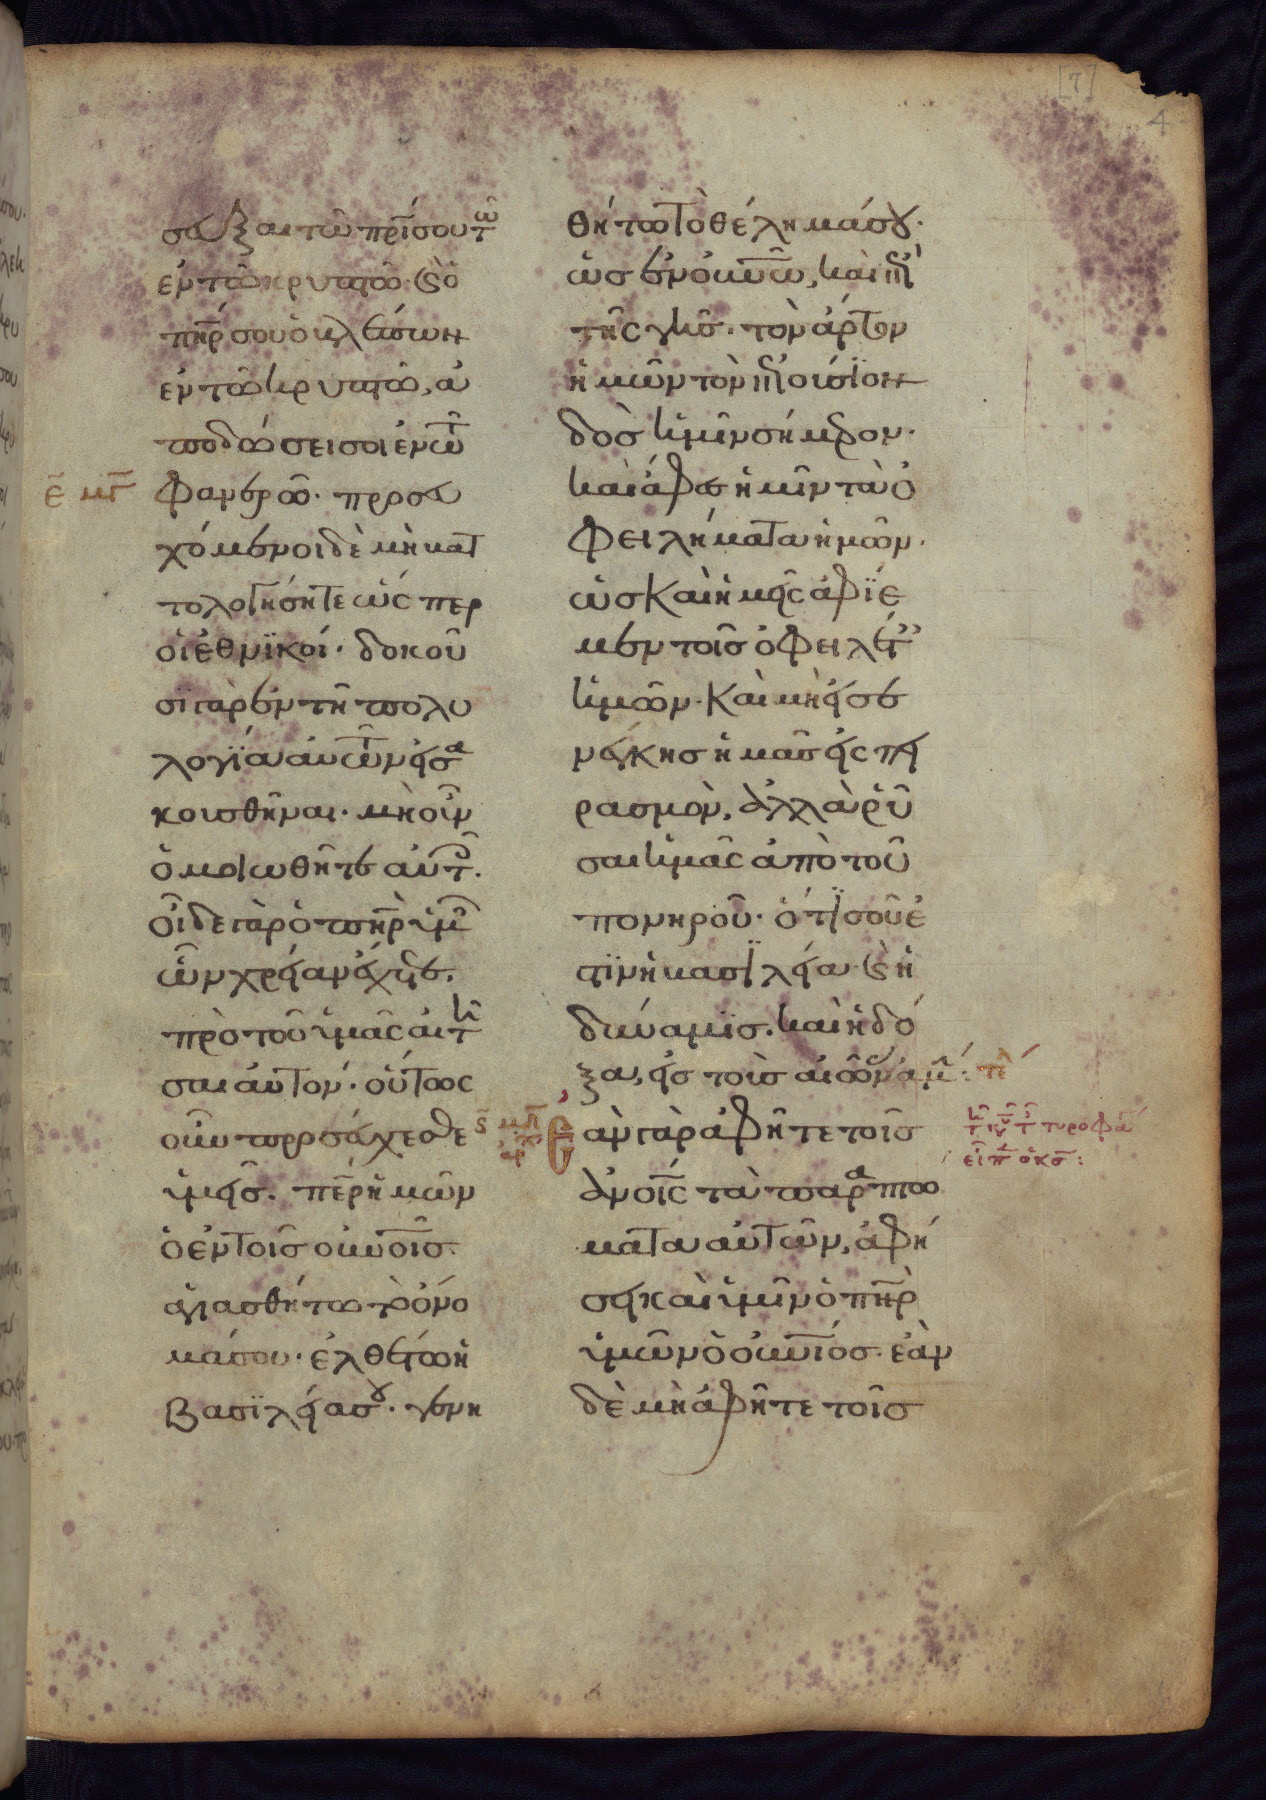 [7]
4
σευξαι τῶ πρί σου τῶ
ἐν τῶ κρυπτῶ· καὶ ὁ
πηρ σου ὁ βλέπων
ἐν τῶ κρυπτῶ, ἀ
ποδώσει σοι ἐν τῶ
φανερῶ· προσευ
χόμενοι δὲ μὴ βατ
τολογήσητε ὥσπερ
οἱ ἐθνϊκοί· δοκοῦ
σι γὰρ ἐν τῆ πολυ
λογΐα αὐτῶν εἰσα
κουσθῆναι· μὴ οὖν
ὁμοιωθῆτε αὐτοῖς.
οἶδε γὰρ ὁ πηρ ὑμῶν
ὧν χρείαν ἔχετε.
πρὸ τοῦ ὑμᾶς αἰτῆ
σαι αὐτόν· οὕτως
οὖν προσεύχεσθε
ὑμεῖς. περ ἡμῶν
ὁ ἐν τοῖς οὐνοῖς.
ἁγιασθήτω τὸ ὄνο
μά σου· ἐλθέτω ἡ
βασϊλεία σου· γενη
θήτω τὸ θέλημά σου·
ὡς ἐν οὐνῶ, καὶ ἐπὶ
τῆς γῆς· τὸν ἄρτον
ἡμῶν τὸν ἐπιούσϊον
δὸς ἡμῖν σήμερον·
καὶ ἄφες ἡμῖν τὰ ὀ
φειλήματα ἡμῶν·
ὡς καὶ ἡμεῖς ἀφΐε
μεν τοῖς ὀφειλέταις
ἡμῶν· καὶ μὴ εἰσε
νέγκης ἡμᾶς εἰς πει
ρασμὸν, ἀλλὰ ῥῦ
σαι ἡμᾶς ἀπὸ τοῦ
πονηροῦ· ὅτϊ σοῦ ἐ
στϊν ἡ βασϊλεία· καὶ ἡ
δύναμϊς. καὶ ἡ δό
ξα, εἰς τοὺς αἰῶνας ἀμ:
Ἐὰν γὰρ ἀφῆτε τοῖς
ἀνοις τὰ παραπτώ
ματα αὐτῶν, ἀφή
σει καὶ ὑμῖν ὁ πηρ
ὑμῶν ὁ οὐνιος· ἐὰν
δὲ μὴ ἀφῆτε τοῖς